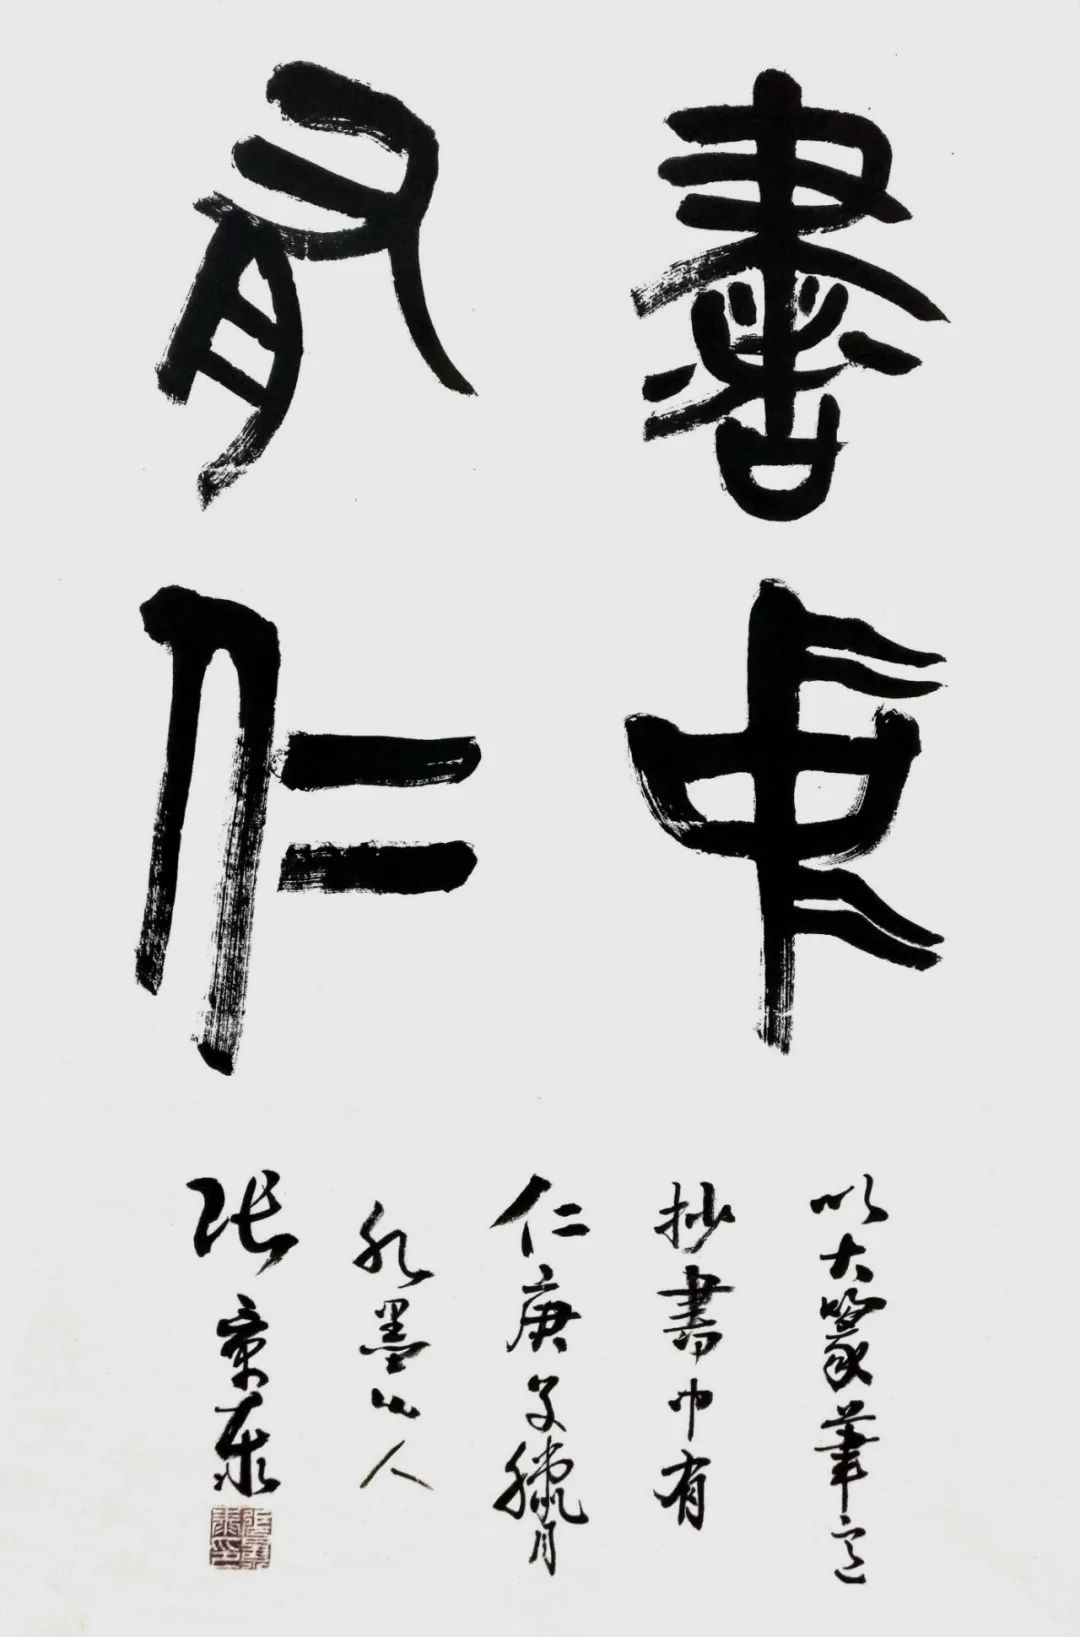 書中
有仁
以大篆筆意
抄書中有
仁庚子臘月
水墨山人
张